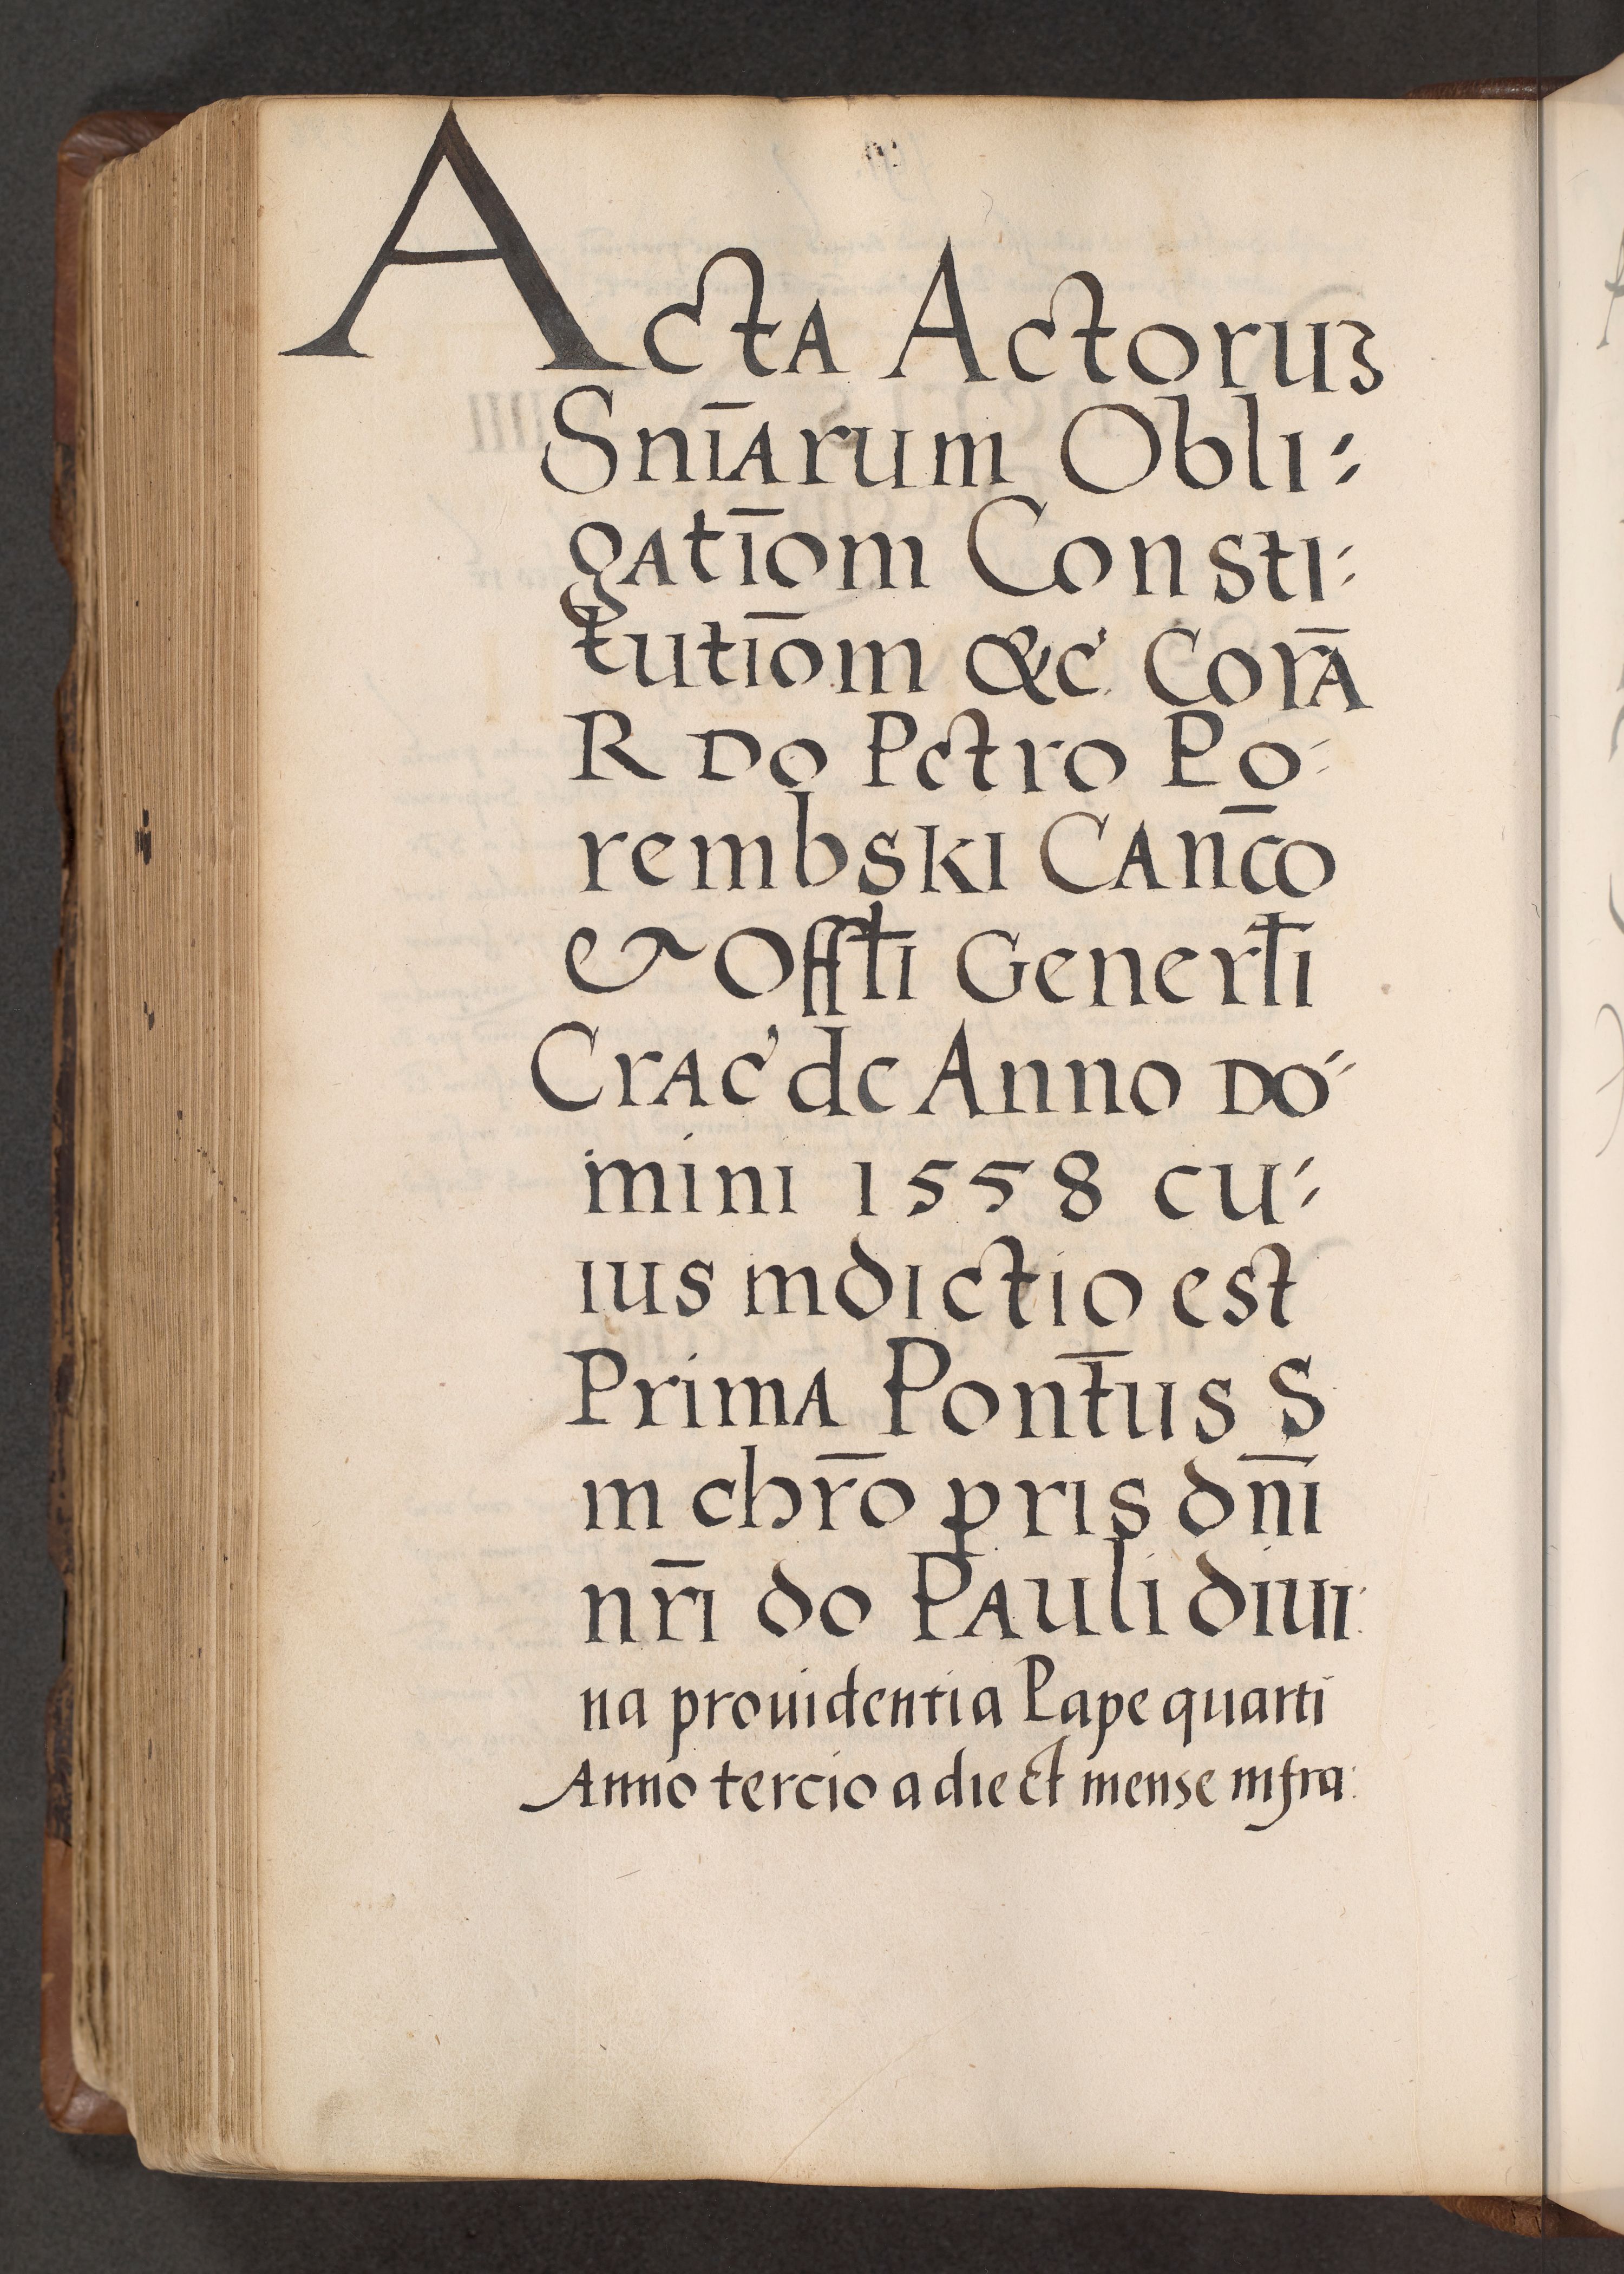 Acta Actoruꝫ
Snīarum Obli⸗
gatīom Consti⸗
tutīom &c̓ Corā
R Do Petro Po⸗
rembski Canc̄o
& Offti Genert̄i
Crac̓ de Anno Do⸗
mini 1558 cu⸗
ius indictio est
Prima Pont̄us S
in chr̄o pris dn̄i
nr̄i do Pauli diui⸗
na prouidentia Pape quarti
Anno tercio a die et mense infra⸗